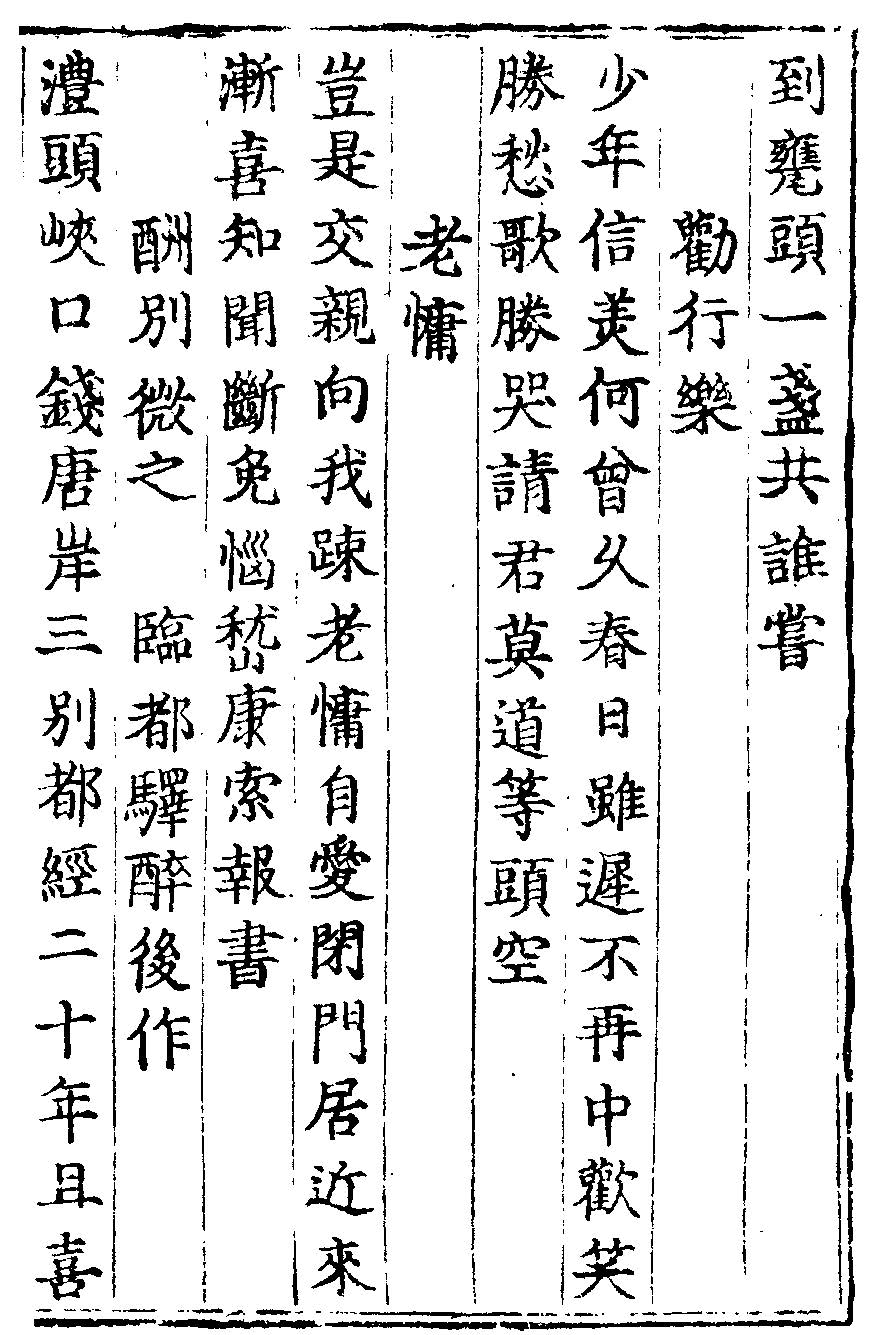 到甕頭一盞共誰嘗
勸行樂
少年信美何曾久春日雖遲不再中歡笑
勝愁歌勝哭請君莫道等頭空
老慵
豈是交親向我踈老慵自愛閉門居近來
漸喜知聞斷免惱嵇康索報書
酬別微之　臨都驛醉後作
灃頭峽口錢唐岸三別都經二十年且喜